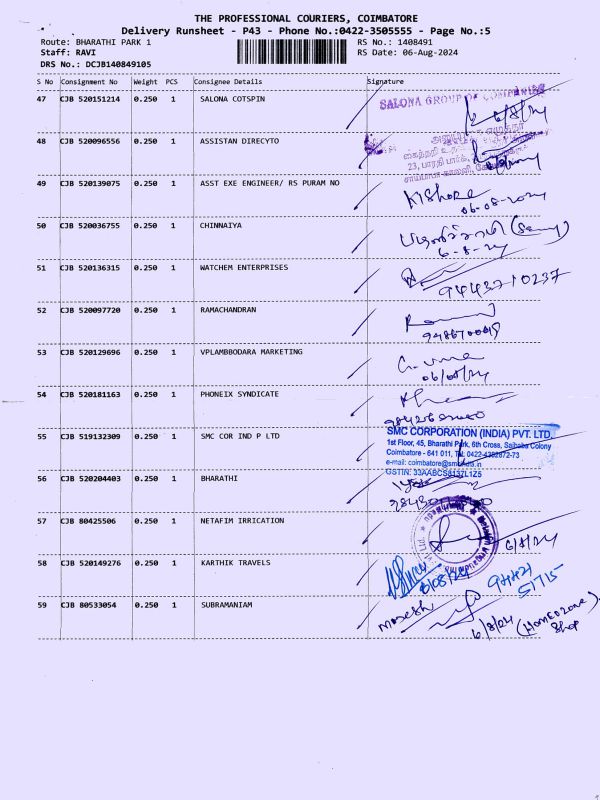 THE PROFESSIONAL COURIERS, COIMBATORE
Delivery Runsheet - P43 - Phone No.:0422-3505555 - Page No.:5
Route: BHARATHI PARK 1 RS No.: 1408491
Staff: RAVI RS Date: 06-Aug-2024
DRS No.: DCJB140849105
S No Consignment No Weight PCS Consignee Details Signature
47 CJB 520151214 0.250 1 SALONA COTSPIN SALONA GROUP OF COMPANIES
6/8/24
48 CJB 520096556 0.250 1 ASSISTAN DIRECYTO
23, பாரதி பார்க்
49 CJB 520139075 0.250 1 ASST EXE ENGINEER/ RS PURAM NO Kishore
06-08-2024
50 CJB 520036755 0.250 1 CHINNAIYA
6-8-24
51 CJB 520136315 0.250 1 WATCHEM ENTERPRISES
9443710237
52 CJB 520097720 0.250 1 RAMACHANDRAN
53 CJB 520129696 0.250 1 VPLAMBBODARA MARKETING
06/08/24
54 CJB 520181163 0.250 1 PHONEIX SYNDICATE
55 CJB 519132309 0.250 1 SMC COR IND P LTD SMC CORPORATION (INDIA) PVT. LTD.
1st Floor, 45, Bharathi Park, 6th Cross, Saibaba Colony
Coimbatore - 641 011, Tel: 0422-4392872-73
e-mail: coimbatore@smcind.in
GSTIN: 33AABCS8137L1Z5
56 CJB 520204403 0.250 1 BHARATHI
57 CJB 80425506 0.250 1 NETAFIM IRRICATION
6/8/24
58 CJB 520149276 0.250 1 KARTHIK TRAVELS
8/08/24 94421
51715
59 CJB 80533054 0.250 1 SUBRAMANIAM
6/8/24 (Homeozone
Shop)